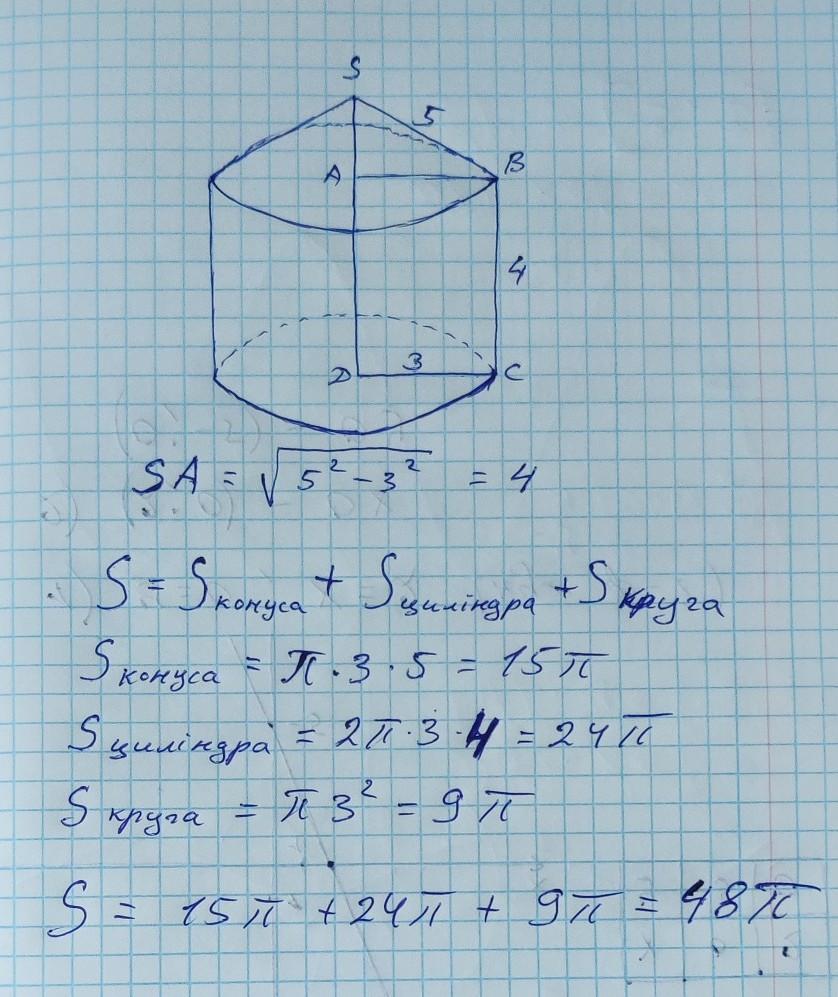 S
5
A B
4
D 3 C
SA = √(5² − 3²) = 4
S = Sконуса + Sциліндра + Sкруга
Sконуса = π · 3 · 5 = 15π
Sциліндра = 2π · 3 · 4 = 24π
Sкруга = π 3² = 9π
S = 15π + 24π + 9π = 48π